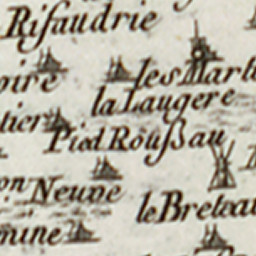 Risaudrie
oire les Mart
la Laugere
tier
Pied Roußau
on Neuve
le Breteau
mine